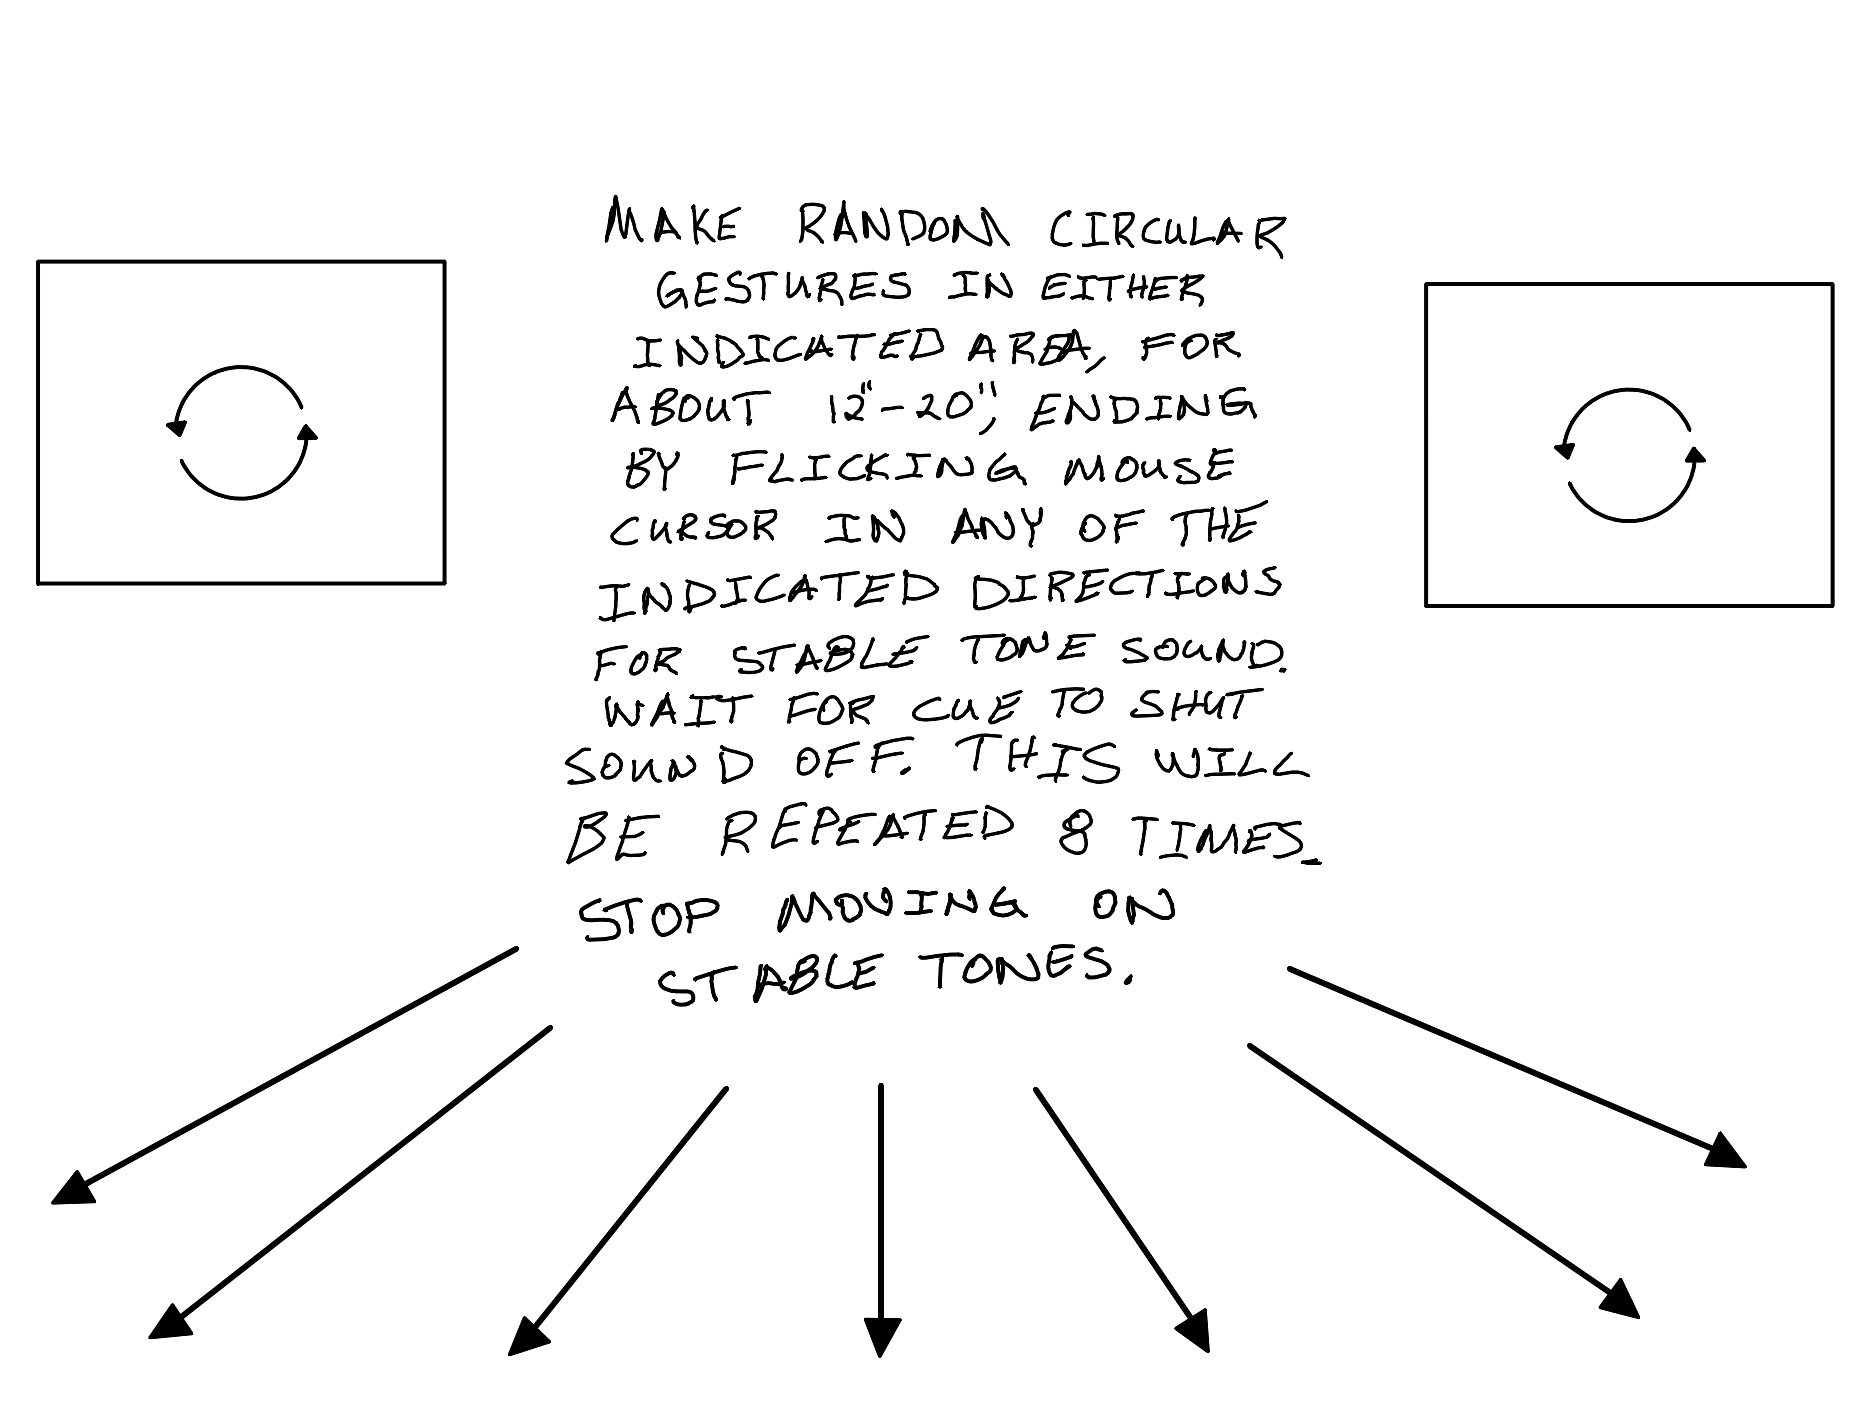 MAKE RANDOM CIRCULAR
GESTURES IN EITHER
INDICATED AREA, FOR
ABOUT 12"-20", ENDING
BY FLICKING MOUSE
CURSOR IN ANY OF THE
INDICATED DIRECTIONS
FOR STABLE TONE SOUND.
WAIT FOR CUE TO SHUT
SOUND OFF. THIS WILL
BE REPEATED 8 TIMES.
STOP MOVING ON
STABLE TONES.